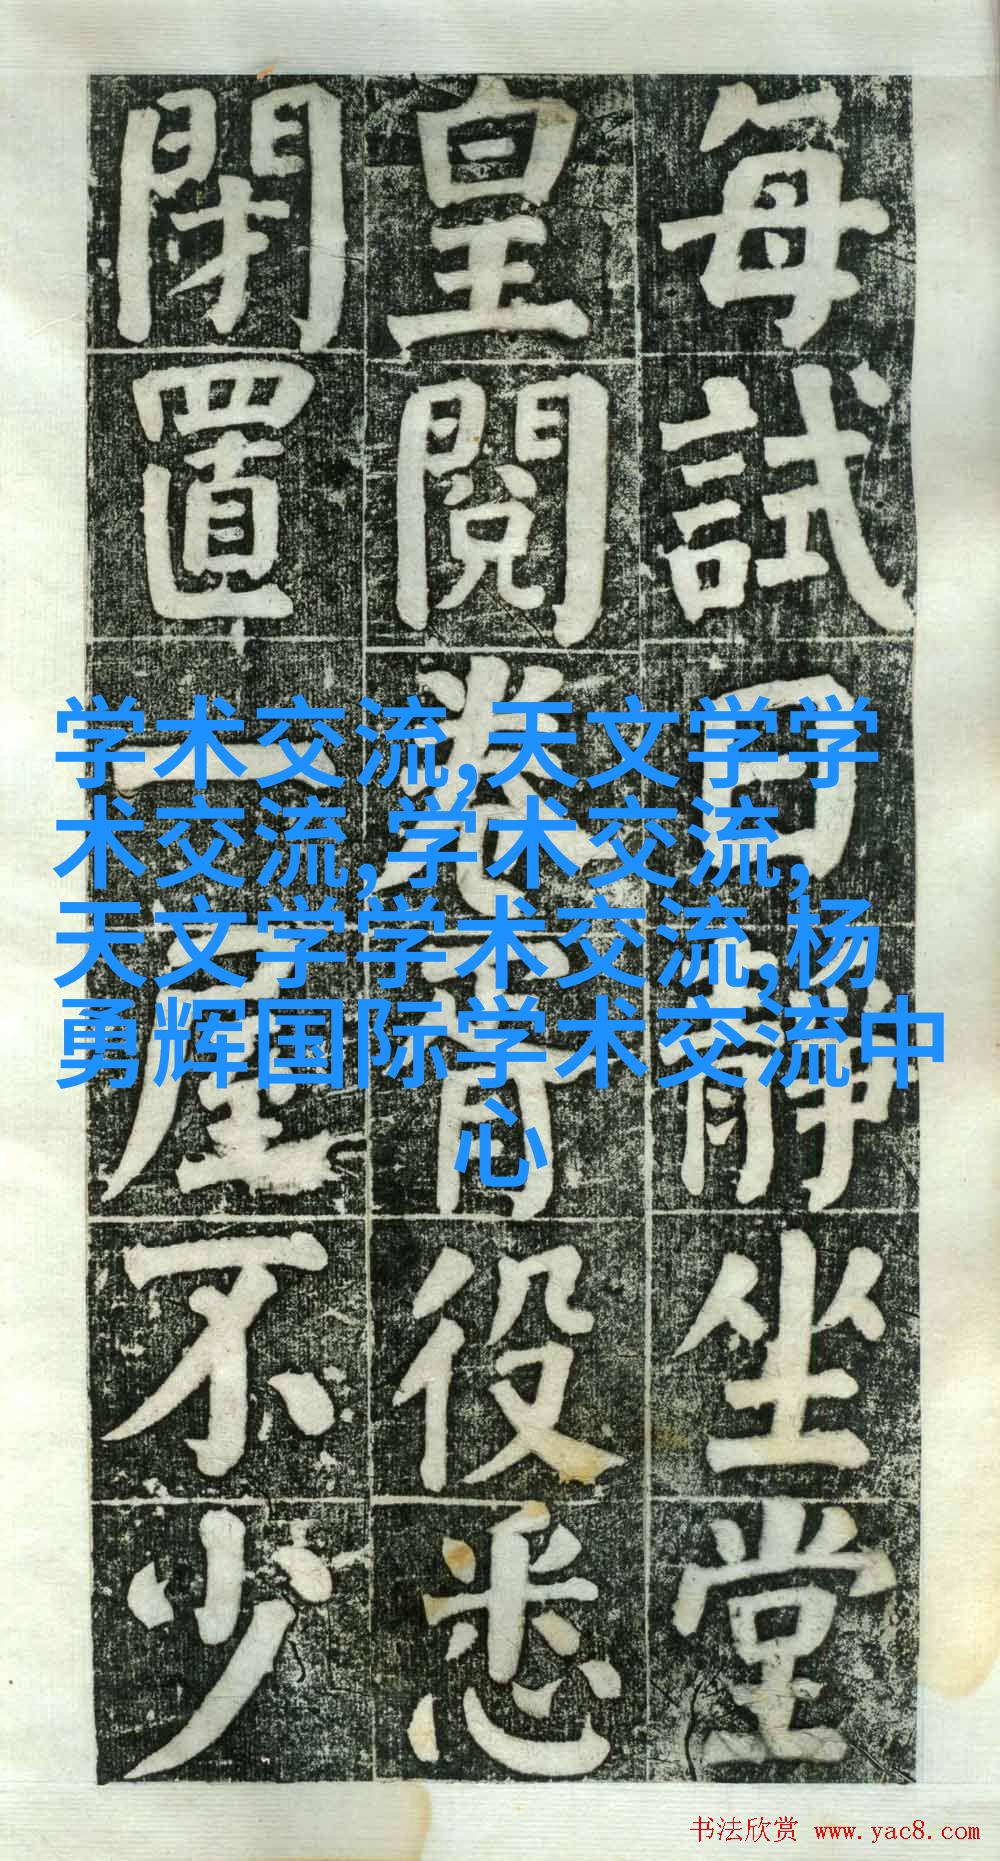 每試日靜坐堂
皇閱卷胥役悉
閉置一屋不少
学术交流,天文学学
术交流,学术交流,
天文学学术交流,杨
勇辉国际学术交流中
心
书法欣赏 www.yac8.com